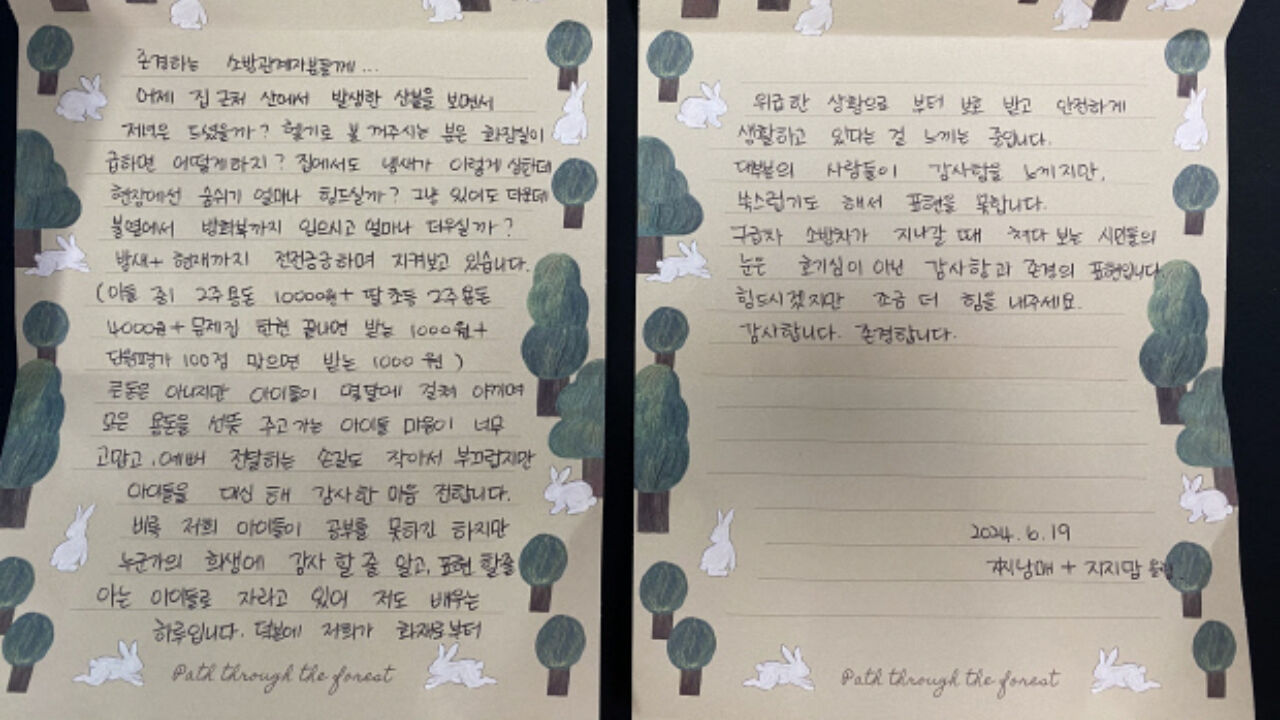 존경하는 소방관계자분들께...
어제 집 근처 산에서 발생한 산불을 보면서
저녁은 드셨을까? 헬기로 불 꺼주시는 분은 화장실이
급하면 어떻게하지? 집에서도 냄새가 이렇게 심한데
현장에선 숨쉬기 얼마나 힘드실까? 그냥 있어도 더운데
불옆에서 방화복까지 입으시고 얼마나 더우실까?
밤새+ 현재까지 전전긍긍하며 지켜보고 있습니다.
(아들 중1 2주용돈 10000원+ 딸 초등 2주용돈
4000원+ 문제집 한권 끝내면 받는 1000원+
단원평가 100점 맞으면 받는 1000원)
큰돈은 아니지만 아이들이 몇달에 걸쳐 아끼며
모은 용돈을 선뜻 주고가는 아이들 마음이 너무
고맙고, 예뻐 전달하는 손길도 작아서 부끄럽지만
아이들을 대신 해 감사한 마음 전합니다.
비록 저희 아이들이 공부를 못하긴 하지만
누군가의 희생에 감사 할 줄 알고, 표현 할줄
아는 아이들로 자라고 있어 저도 배우는
하루입니다. 덕분에 저희가 화재로부터
Path through the forest
위급한 상황으로 부터 보호 받고 안전하게
생활하고 있다는 걸 느끼는 중입니다.
대부분의 사람들이 감사함을 느끼지만,
쑥스럽기도 해서 표현을 못합니다.
구급차 소방차가 지나갈 때 쳐다 보는 시민들의
눈은 호기심이 아닌 감사함과 존경의 표현입니다.
힘드시겠지만 조금 더 힘을 내주세요.
감사합니다. 존경합니다.
2024.6.19
찌남매 + 지지맘 올림.
Path through the forest